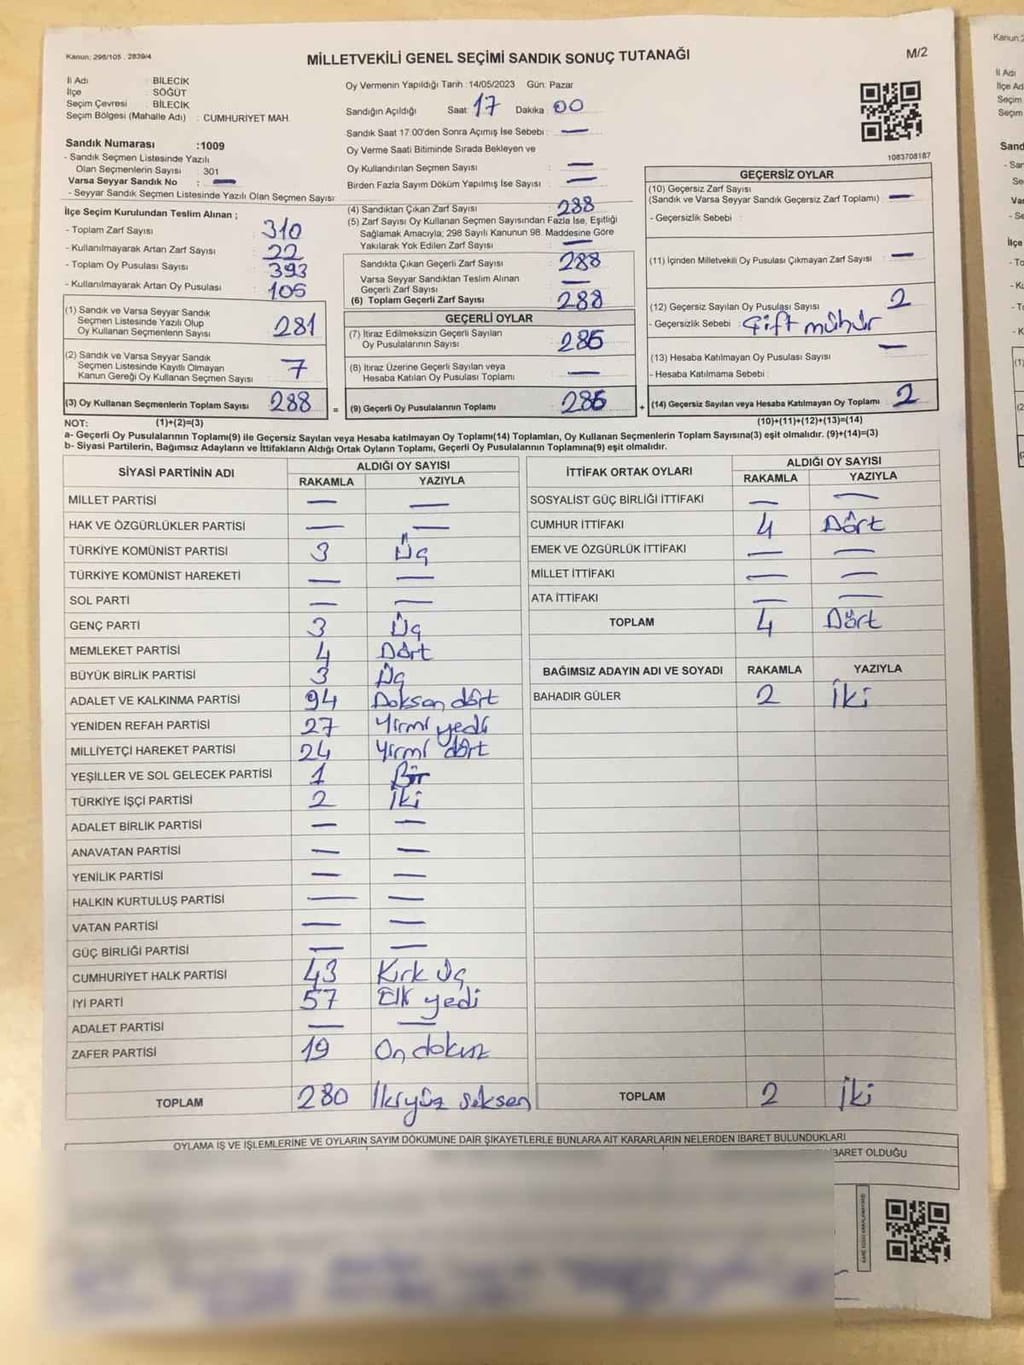 Kanun: 298/105 . 2839/4
MİLLETVEKİLİ GENEL SEÇİMİ SANDIK SONUÇ TUTANAĞI
M/2
İl Adı : BİLECİK
İlçe : SÖĞÜT
Seçim Çevresi : BİLECİK
Seçim Bölgesi (Mahalle Adı) : CUMHURİYET MAH.
Sandık Numarası :1009
- Sandık Seçmen Listesinde Yazılı
Olan Seçmenlerin Sayısı : 301
Varsa Seyyar Sandık No : —
- Seyyar Sandık Seçmen Listesinde Yazılı Olan Seçmen Sayısı :
Oy Vermenin Yapıldığı Tarih :14/05/2023 Gün: Pazar
Sandığın Açıldığı Saat : 17 Dakika : 00
Sandık Saat 17.00'den Sonra Açımış İse Sebebi : —
Oy Verme Saati Bitiminde Sırada Bekleyen ve
Oy Kullandırılan Seçmen Sayısı : —
Birden Fazla Sayım Döküm Yapılmış İse Sayısı : —
1083708187
İlçe Seçim Kurulundan Teslim Alınan ;
- Toplam Zarf Sayısı : 310
- Kullanılmayarak Artan Zarf Sayısı : 22
- Toplam Oy Pusulası Sayısı : 393
- Kullanılmayarak Artan Oy Pusulası : 105
(1) Sandık ve Varsa Seyyar Sandık
Seçmen Listesinde Yazılı Olup
Oy Kullanan Seçmenlerin Sayısı : 281
(2) Sandık ve Varsa Seyyar Sandık
Seçmen Listesinde Kayıtlı Olmayan
Kanun Gereği Oy Kullanan Seçmen Sayısı : 7
(3) Oy Kullanan Seçmenlerin Toplam Sayısı : 288 =
(4) Sandıktan Çıkan Zarf Sayısı : 288
(5) Zarf Sayısı Oy Kullanan Seçmen Sayısından Fazla İse, Eşitliği
Sağlamak Amacıyla; 298 Sayılı Kanunun 98. Maddesine Göre
Yakılarak Yok Edilen Zarf Sayısı : —
Sandıkta Çıkan Geçerli Zarf Sayısı : 288
Varsa Seyyar Sandıktan Teslim Alınan
Geçerli Zarf Sayısı : —
(6) Toplam Geçerli Zarf Sayısı : 288
GEÇERLİ OYLAR
(7) İtiraz Edilmeksizin Geçerli Sayılan
Oy Pusulalarının Sayısı : 286
(8) İtiraz Üzerine Geçerli Sayılan veya
Hesaba Katılan Oy Pusulası Toplamı : —
(9) Geçerli Oy Pusulalarının Toplamı : 286 +
GEÇERSİZ OYLAR
(10) Geçersiz Zarf Sayısı
(Sandık ve Varsa Seyyar Sandık Geçersiz Zarf Toplamı) : —
- Geçersizlik Sebebi :
(11) İçinden Milletvekili Oy Pusulası Çıkmayan Zarf Sayısı : —
(12) Geçersiz Sayılan Oy Pusulası Sayısı : 2
- Geçersizlik Sebebi : Çift mühür
(13) Hesaba Katılmayan Oy Pusulası Sayısı : —
- Hesaba Katılmama Sebebi :
(14) Geçersiz Sayılan veya Hesaba Katılmayan Oy Toplamı : 2
NOT: (1)+(2)=(3) (10)+(11)+(12)+(13)=(14)
a- Geçerli Oy Pusulalarının Toplamı(9) ile Geçersiz Sayılan veya Hesaba katılmayan Oy Toplamı(14) Toplamları, Oy Kullanan Seçmenlerin Toplam Sayısına(3) eşit olmalıdır. (9)+(14)=(3)
b- Siyasi Partilerin, Bağımsız Adayların ve İttifakların Aldığı Ortak Oyların Toplamı, Geçerli Oy Pusulalarının Toplamına(9) eşit olmalıdır.
SİYASİ PARTİNİN ADI ALDIĞI OY SAYISI
RAKAMLA YAZIYLA
MİLLET PARTİSİ — —
HAK VE ÖZGÜRLÜKLER PARTİSİ — —
TÜRKİYE KOMÜNİST PARTİSİ 3 Üç
TÜRKİYE KOMÜNİST HAREKETİ — —
SOL PARTİ — —
GENÇ PARTİ 3 Üç
MEMLEKET PARTİSİ 4 Dört
BÜYÜK BİRLİK PARTİSİ 3 Üç
ADALET VE KALKINMA PARTİSİ 94 Doksan dört
YENİDEN REFAH PARTİSİ 27 Yirmi yedi
MİLLİYETÇİ HAREKET PARTİSİ 24 Yirmi dört
YEŞİLLER VE SOL GELECEK PARTİSİ 1 Bir
TÜRKİYE İŞÇİ PARTİSİ 2 İki
ADALET BİRLİK PARTİSİ — —
ANAVATAN PARTİSİ — —
YENİLİK PARTİSİ — —
HALKIN KURTULUŞ PARTİSİ — —
VATAN PARTİSİ — —
GÜÇ BİRLİĞİ PARTİSİ — —
CUMHURİYET HALK PARTİSİ 43 Kırk üç
İYİ PARTİ 57 Elli yedi
ADALET PARTİSİ — —
ZAFER PARTİSİ 19 On dokuz
TOPLAM 280 İkiyüz seksen
İTTİFAK ORTAK OYLARI ALDIĞI OY SAYISI
RAKAMLA YAZIYLA
SOSYALİST GÜÇ BİRLİĞİ İTTİFAKI — —
CUMHUR İTTİFAKI 4 Dört
EMEK VE ÖZGÜRLÜK İTTİFAKI — —
MİLLET İTTİFAKI — —
ATA İTTİFAKI — —
TOPLAM 4 Dört
BAĞIMSIZ ADAYIN ADI VE SOYADI RAKAMLA YAZIYLA
BAHADIR GÜLER 2 İki
TOPLAM 2 İki
OYLAMA İŞ VE İŞLEMLERİNE VE OYLARIN SAYIM DÖKÜMÜNE DAİR ŞİKAYETLERLE BUNLARA AİT KARARLARIN NELERDEN İBARET BULUNDUKLARI
İBARET OLDUĞU